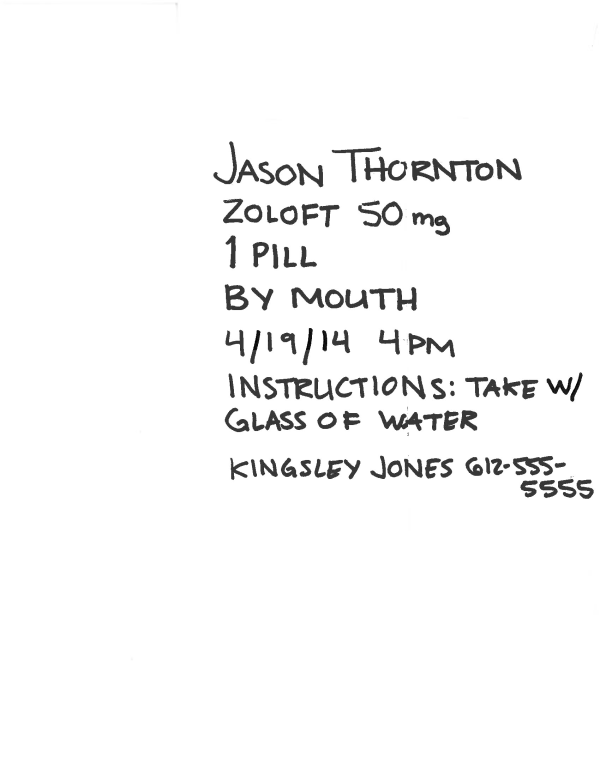 JASON THORNTON
ZOLOFT 50 mg
1 PILL
BY MOUTH
4/19/14 4PM
INSTRUCTIONS: TAKE W/
GLASS OF WATER
KINGSLEY JONES 612-555-
5555